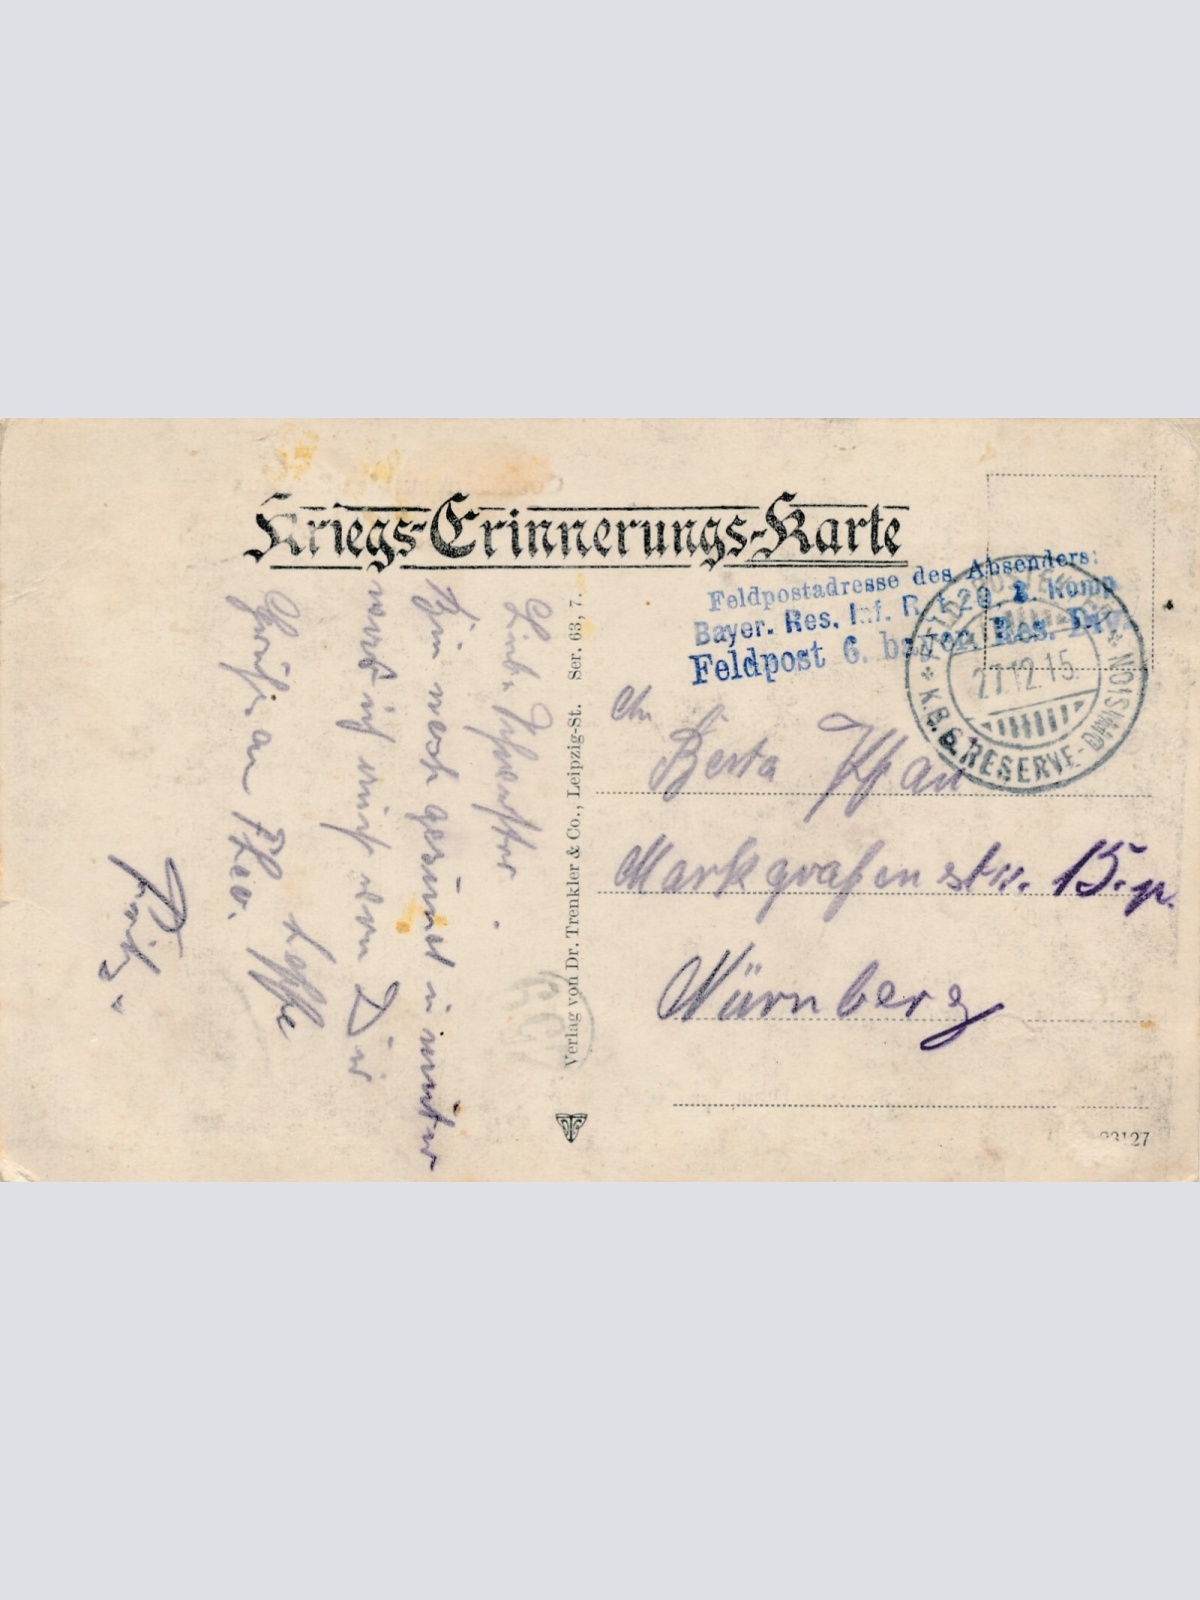 Kriegs-Erinnerungs-Karte
Feldpostadresse des Absenders:
Bayer. Res. Inf. R. 20, 2. Komp
Feldpost 6. bayer. Res. Div.
FELDPOSTEXP.
27.12.15.
* K.B.6. RESERVE-DIVISION *
An
Berta Pfau
Markgrafenstr. 15. p.
Nürnberg
23127
Verlag von Dr. Trenkler & Co., Leipzig-St. Ser. 63, 7.
Liebe Schwester.
Bin noch gesund u munter
was ich auch von Dir
hoffe
Grüße an Theo.
Fritz